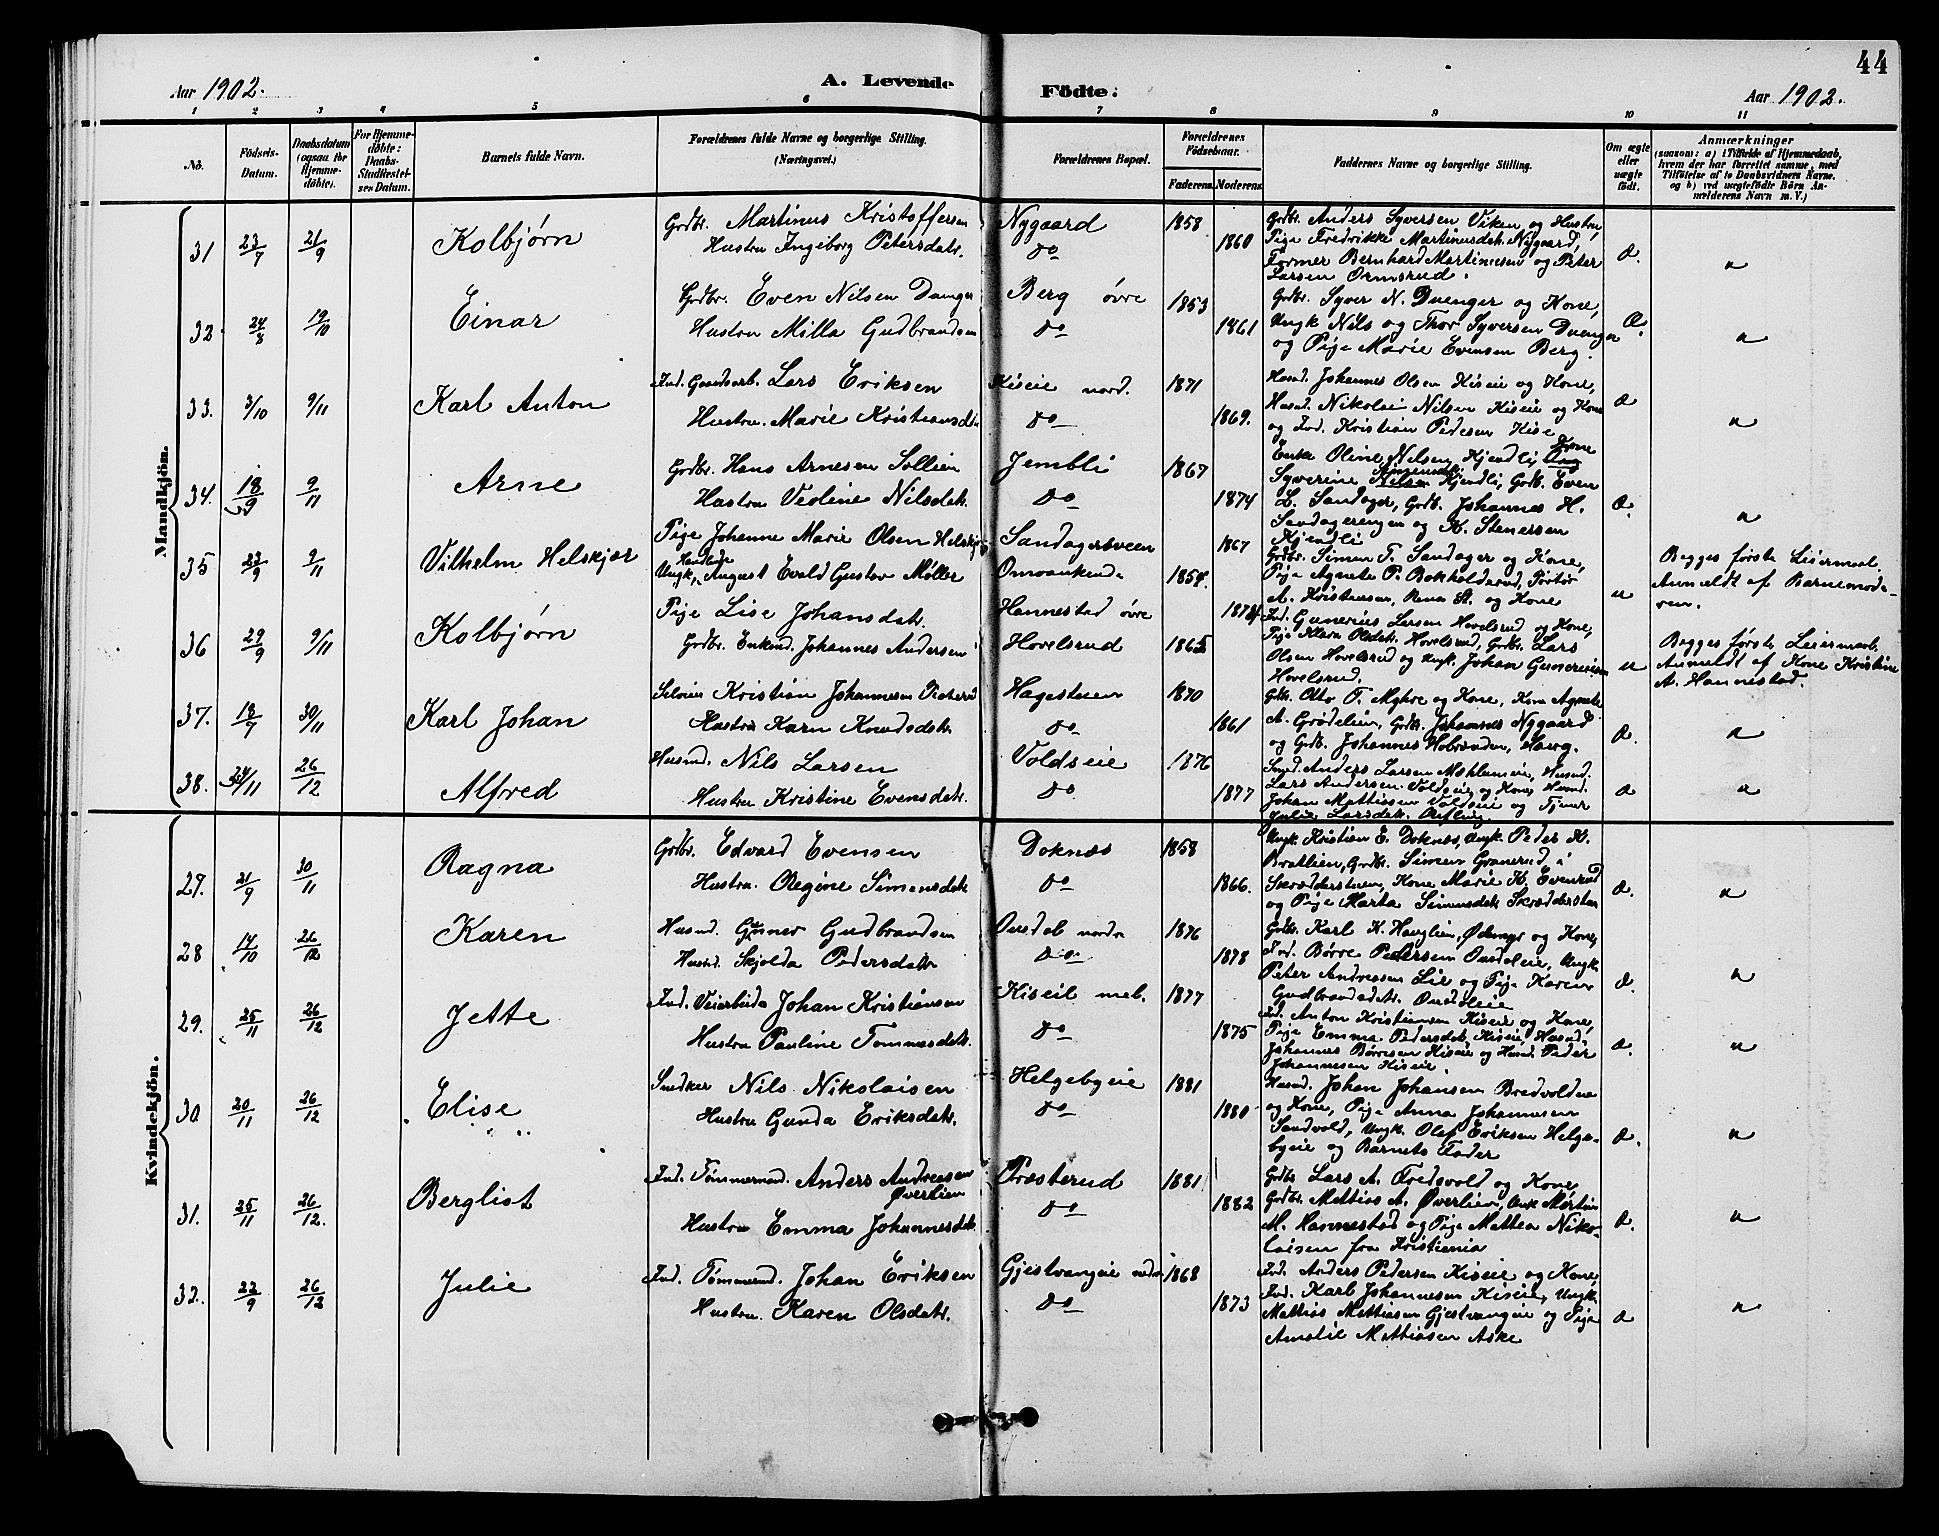 44
Aar 1902.
A. Levende Födte:
Aar 1902.
1 2 3 4 5 6 7 8 9 10 11
No.
Födsels-Datum.
Daabsdatum (ogsaa for Hjemmedöbte).
For Hjemmedöbte: Daabs-Stadfæstelsens Datum.
Barnets fulde Navn.
Forældrenes fulde Navne og borgerlige Stilling. (Næringsvei.)
Forældrenes Bopæl.
Forældrenes Födselsaar.
Faderens. Moderens.
Faddernes Navne og borgerlige Stilling.
Om ægte eller uægte födt.
Anmærkninger (saasom: a) i Tilfælde af Hjemmedaab, hvem der har forrettet samme, med Tilföielse af to Daabsvidners Navne. og b) ved uægtefödte Börn Anmelderens Navn m. V.)
Mandkjön.
31 23/7 21/9 Kolbjørn
Grdbr. Martinus Kristoffersen
Hustru Ingeborg Petersdatr.
Nygaard
do
1858
1860
Grdbr. Anders Syversen Viken og Hustru,
Pige Fredrikke Martinusdatr. Nygaard,
Former Bernhard Martinusen og Peter
Larsen Ormsrud.
Æ.
"
32. 24/8 19/10 Einar
Grdbr. Even Nilsen Dænger
Hustru Milla Gudbrandsen
Berg øvre
do
1853
1861
Grdbr. Syver N. Dænger og Kone,
Ungk Nils og Thor Syversen Dænger
og Pige Marie Evensen Berg.
Æ.
"
33. 3/10 9/11 Karl Anton
Ind. Gaardsarb. Lars Eriksen
Hustru. Marie Kristiansdtr
Kiseie nord.
do
1871
1869.
Husmd. Johannes Olsen Kiseie og Kone,
Husmd. Nikolai Nilsen Kiseie og Kone
og Ind. Kristian Pedersen Kise
Æ
"
34. 18/9 9/11 Arne
Grdbr. Hans Arnesen Sollien
Hustru Verline Nilsdatr.
Jembli
do
1867
1874
Enke Oline Nilsen Kjendli, Kone
Syverine Kjendli, Grdb. Even
L. Sandager, Grdb. Johannes H.
Sandagerengen og K. Stenersen
Kjendli
Æ.
"
35 23/9 9/11 Vilhelm Helskjær
Pige Johanne Marie Olsen Helskjær
Handlende
Ungk. August Evald Gustav Møller
Sandagersveen
1867
1854.
Grdbr. Simen T. Sandager og Kone,
Pige Agnete P. Bokholdsrud, Portør
A. Kristensen, Rena St. og Kone
u
Begges første Leiermaal.
Anmeldt af Barnemode-
ren.
36 29/9 9/11 Kolbjørn
Pige Lise Johansdatr.
Grdbr. Enkemd. Johannes Andersen
Hannestad øvre
Hovelsrud
1865
Ind. Gunerius Larsen Hovelsrud og Kone,
Pige Klara Olsdatr. Hovelsrud, Grdbr. Lars
Olsen Hovelsrud og Ungk. Johan Gunerius
Hovelsrud.
u
Begges første Leiermaal.
Anmeldt af Kone Kristine
A. Hannestad.
37. 18/7 30/11 Karl Johan
Selveier Kristian Johannesen
Hustru Karn Knudsdatr.
Hagestuen
do
1870
1861
Grdbr. Otto T. Myhre og Kone, Kone Agnete
A. Grødelien, Grdb. Johannes Nygaard
og Grdb. Johannes
Æ.
"
38. 24/11 26/12 Alfred
Husmd. Nils Larsen
Hustru Kristine Evensdatr.
Voldseie
do
1876
1877
Smed. Anders Larsen Mæhlumeie, Husmd.
Lars Andersen Voldseie og Kone, Husmd.
Johan Mattissen Voldseie og Tjener
Julie Larsdatr.
Æ
"
Kvindekjön.
27. 21/9 30/11 Ragna
Grdbr. Edvard Evensen
Hustru. Regine Simensdatr
Doknæs
do
1858
1866.
Ungk. Kristian E. Doknæs, Ungk. Peder K.
Bratlien, Grdbr. Simen Granerud, i
Skrædderstuen, Kone Marie K. Evenrud
og Pige Marta Simensdatr. Skrædderstuen
Æ.
"
28 17/10 26/12 Karen
Husmd. Gunner Gudbrandsen
Hustru. Skjolda Pedersdatr
Ousdal nordre
do
1876
1878
Grdbr. Karl K. Hauglien, Ødemyr og Kone,
Ind. Børre Pedersen Ousdaleie, Ungk.
Peter Andreassen Lie og Pige Karen
Gudbrandsdatr. Ousdaleie
Æ.
"
29. 25/11 26/12 Jette
Ind. Veiarbeider Johan Kristiansen
Hustru Pauline Tommesdatr.
Kiseie mel.
do
1877
1875
Ind. Anton Kristiansen Kiseie og Kone,
Pige Emma Pedersdatr. Kiseie, Husmd.
Johannes Børresen Kiseie og Husmd. Peder
Johannesen Kiseie.
Æ.
"
30 20/11 26/12 Elise
Snedker Nils Nikolaisen
Hustru Gunda Eriksdatr.
Helgebyeie
do
1881
1880.
Husmd. Johan Johansen Bredvolden
og Kone, Pige Anna Johannesen
Sandvold, Ungk. Olaf Eriksen Helge-
byeie og Barnets Fader
Æ.
"
31. 25/11 26/12. Bergliot
Ind. Tømmermd. Anders Andreasen
Øverlien
Hustru Emma Johannesdatr.
Præsterud
do
1881
1882
Grdbr Lars A. Fredsvold og Kone,
Grdbr. Mattias A. Øverlien, Enk Martin
M. Hannestad og Pige Mattea Niko-
laisen fra Kristiania
Æ.
"
32. 22/9 26/12 Julie
Ind. Tømmermd. Johan Eriksen
Hustru. Karen Olsdatr.
Gjestvangeie nedre
do
1868
1873
Ind. Anders Pedersen Kiseie og Kone,
Ind. Karl Johannesen Kiseie, Ungk.
Mattias Mattiasen Gjestvangeie og Pige
Amalie Mattiasen Aske
Æ
"